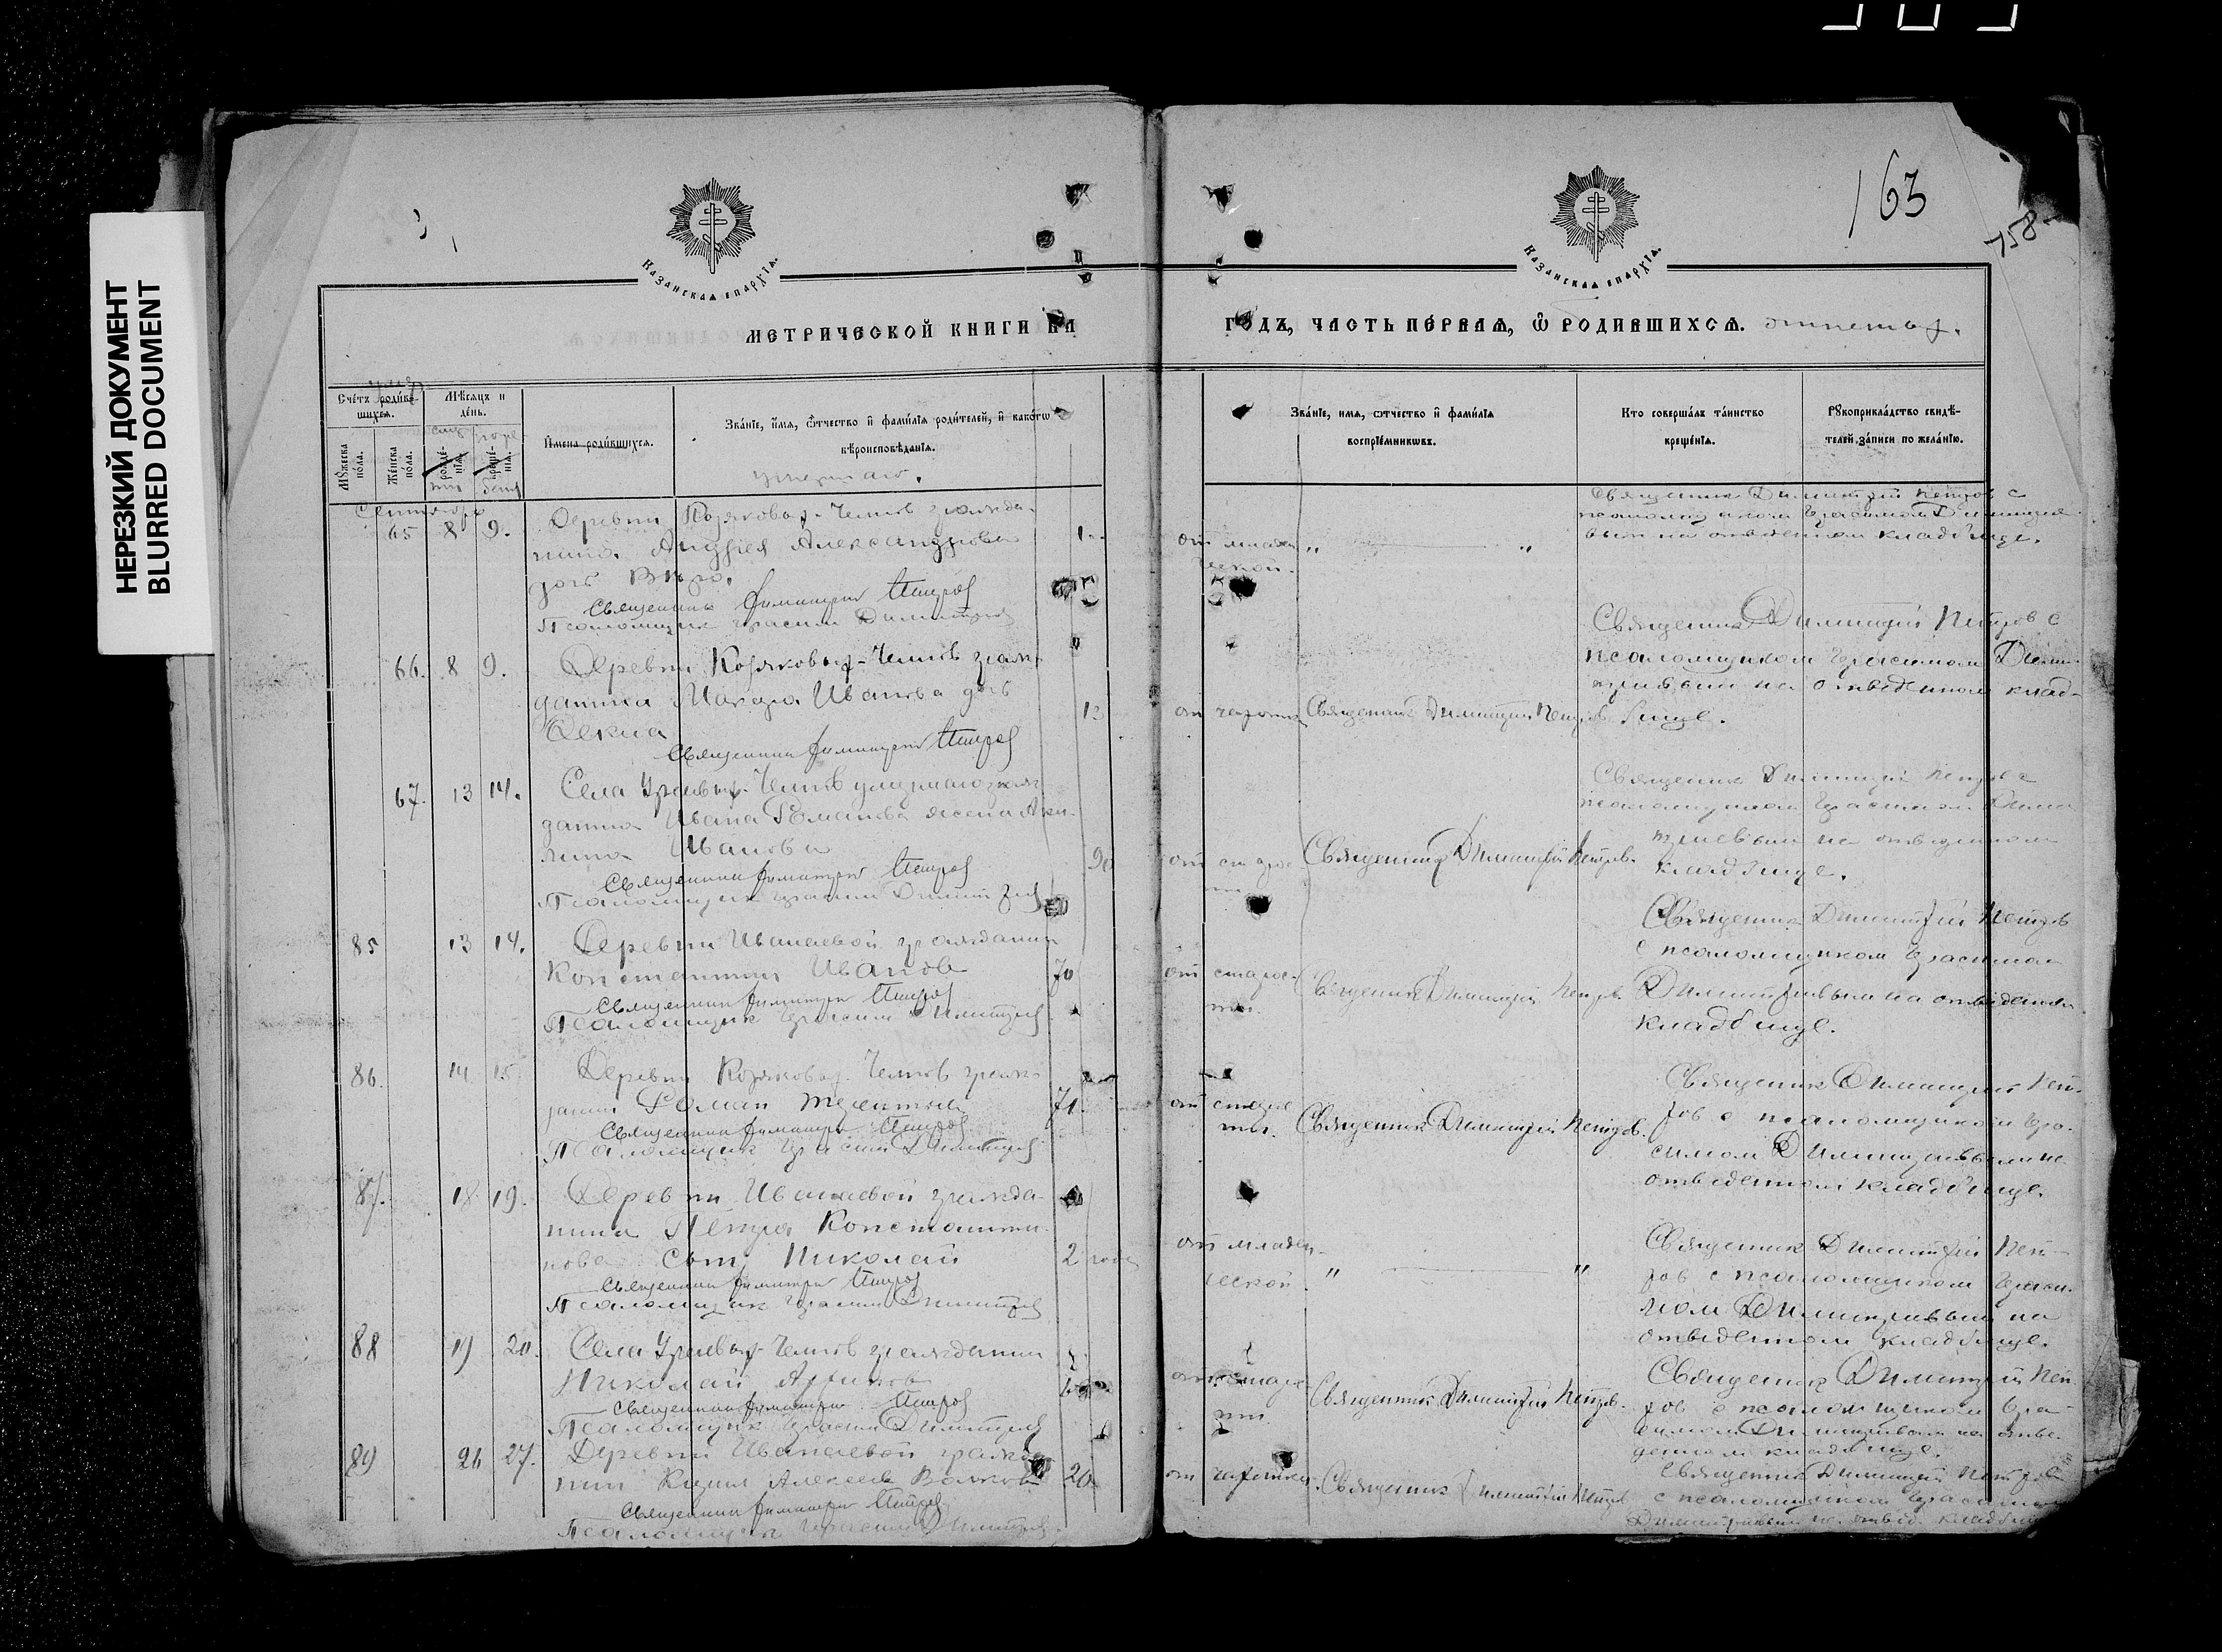 НЕРЕЗКИЙ ДОКУМЕНТ
BLURRED DOCUMENT
163
758
Казанская епархія.
Казанская епархія.
МЕТРИЧЕСКОЙ КНИГИ НА
ГОДЪ, ЧАСТЬ ПЕРВАЯ, Ѿ РОДИВШИХСЯ.
Счётъ родив-
шихся.
Мѣсяцъ и
день.
Мужеска
пола.
Женска
пола.
рожде-
нія.
креще-
нія.
Имена родившихся.
Званіе, имя, ѻтчество и фамилія родителей, и какогѡ
вѣроисповѣданія.
Званіе, имя, ѻтчество и фамилія
воспріемниковъ.
Кто совершалъ таинство
крещенія.
Рукоприкладство свидѣ-
телей записи по желанію.
Сентябрь
65 8 9. Деревни Коряковы-Челны гражда-
нина Андрея Александрова 1
дочь
Священник Димитрий Петров
Псаломщик Герасим Димитриев
от младен
ческой
Священник Димитрий Петров с
псаломщиком Герасимом Димитрие
вым на отведенном кладбище.
66. 8 9. Деревни Коряковы-Челны граж-
данина Макара Иванова дочь 13
Фекла
Священник Димитрий Петров
от чахотки Священник Димитрий Петров
Священник Димитрий Петров с
псаломщиком Герасимом Дими-
триевым на отведенном клад-
бище.
67. 13 14. Села
Ивана Романова жена Аку-
лина Иванова 90
Священник Димитрий Петров
Псаломщик Герасим Димитриев
от старос
ти
Священник Димитрий Петров.
Священник Димитрий Петров с
псаломщиком Герасимом Дими
триевым на отведенном
кладбище.
85 13 14. Деревни Иванаевой гражданин
Константин Иванов 70
Священник Димитрий Петров
Псаломщик Герасим Димитриев
от старос-
ти.
Священник Димитрий Петров.
Священник Димитрий Петров
с псаломщиком Герасимом
Димитриевым на отведенном
кладбище.
86. 14 15 Деревни Коряковы-Челны граж
данин Роман 71.
Священник Димитрий Петров
Псаломщик Герасим Димитриев
от старос
ти.
Священник Димитрий Петров.
Священник Димитрий Пет-
ров с псаломщиком Гера-
симом Димитриевым на
отведенном кладбище.
87. 18 19. Деревни Иванаевой гражда-
нина Петра Константи-
нова сын Николай 2 года
Священник Димитрий Петров
Псаломщик Герасим Димитриев
от младен-
ческой
Священник Димитрий Пет-
ров с псаломщиком Гераси-
мом Димитриевым на
отведенном кладбище.
88 19 20. Села гражданин
Николай
Священник Димитрий Петров
Псаломщик Герасим Димитриев
от старос
ти.
Священник Димитрий Петров.
Священник Димитрий Пет-
ров с псаломщиком Гера-
симом Димитриевым на отве-
денном кладбище.
89 26 27. Деревни Иванаевой гражда
нин Алексеев Волков 20
Священник Димитрий Петров
Псаломщик Герасим Димитриев
от чахотки. Священник Димитрий Петров
Священник Димитрий Петров
с псаломщиком Герасимом
Димитриевым на отвед. кладбище